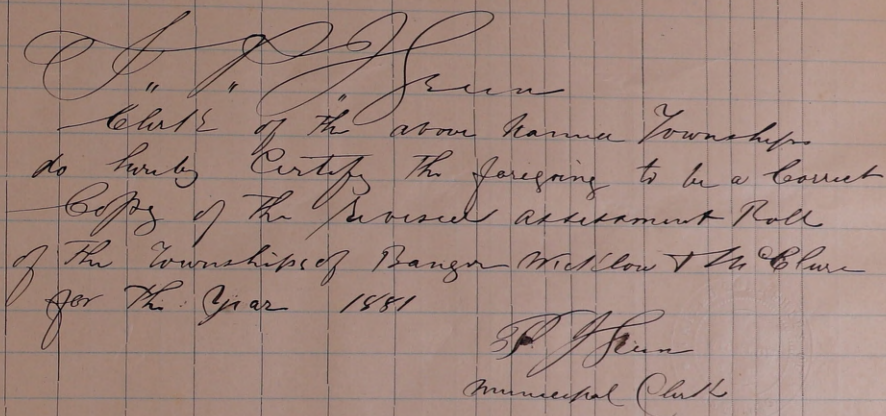 Clerk of the above named Townships
do hereby Certify the foregoing to be a Correct
Copy of the revised assessment Roll
of the Townships of Bangor Wicklow & McClure
for the Year 1881
Municipal Clerk